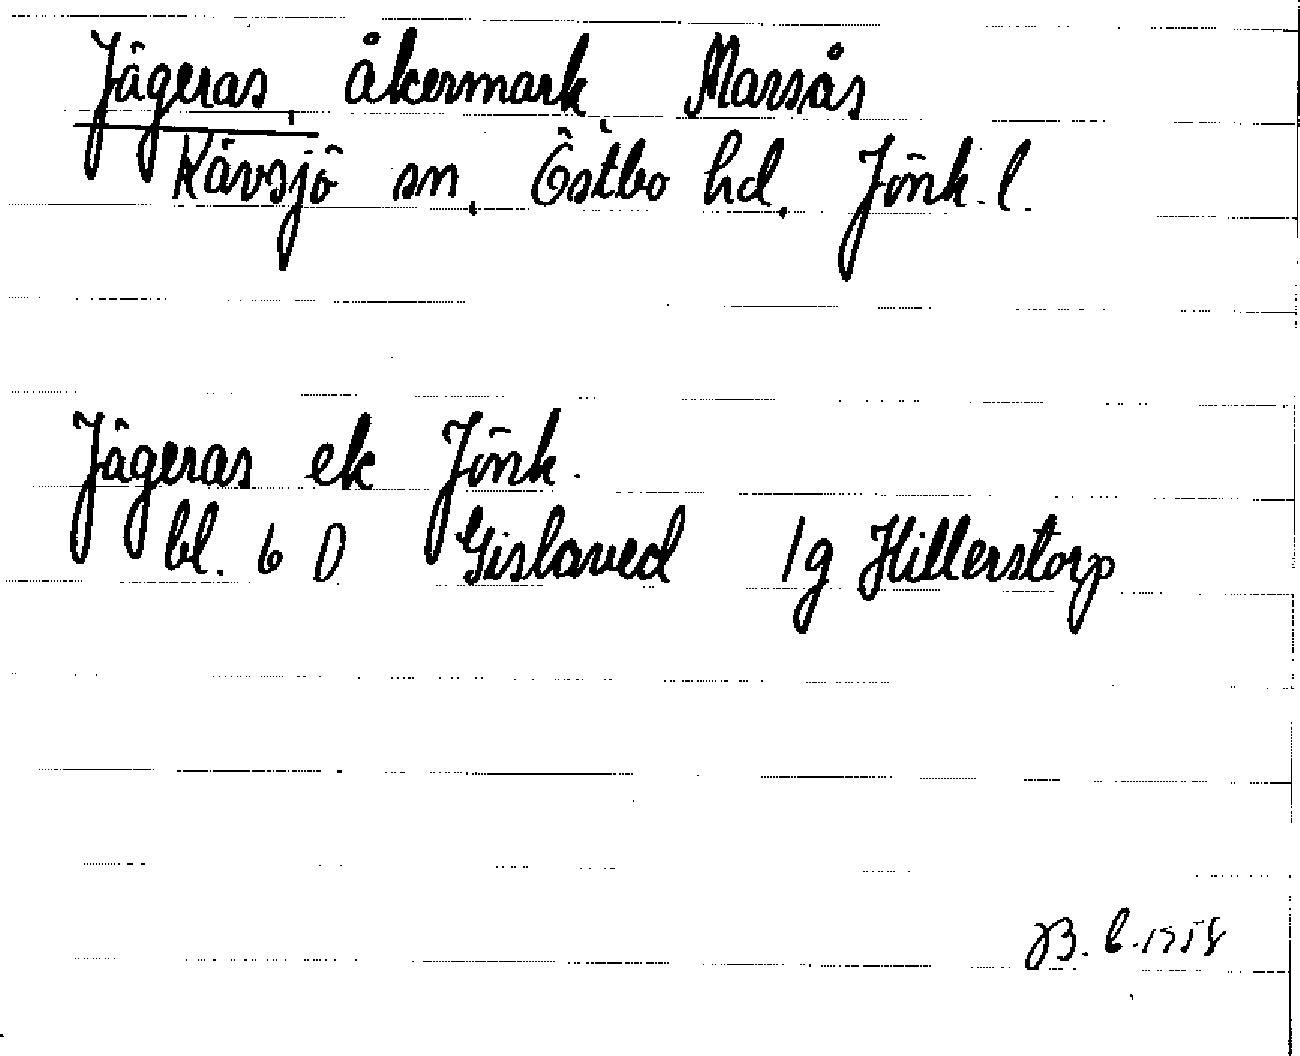 Jägeras, åkermark, Marsås
Kävsjö sn, Östbo hd, Jönk.l.
Jägeras ek Jönk.
bl. 6 D Gislaved 1g Hillerstorp